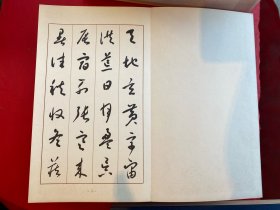 天地玄黃宇宙
洪荒日月盈昃
辰宿列張寒来
暑往秋收冬藏